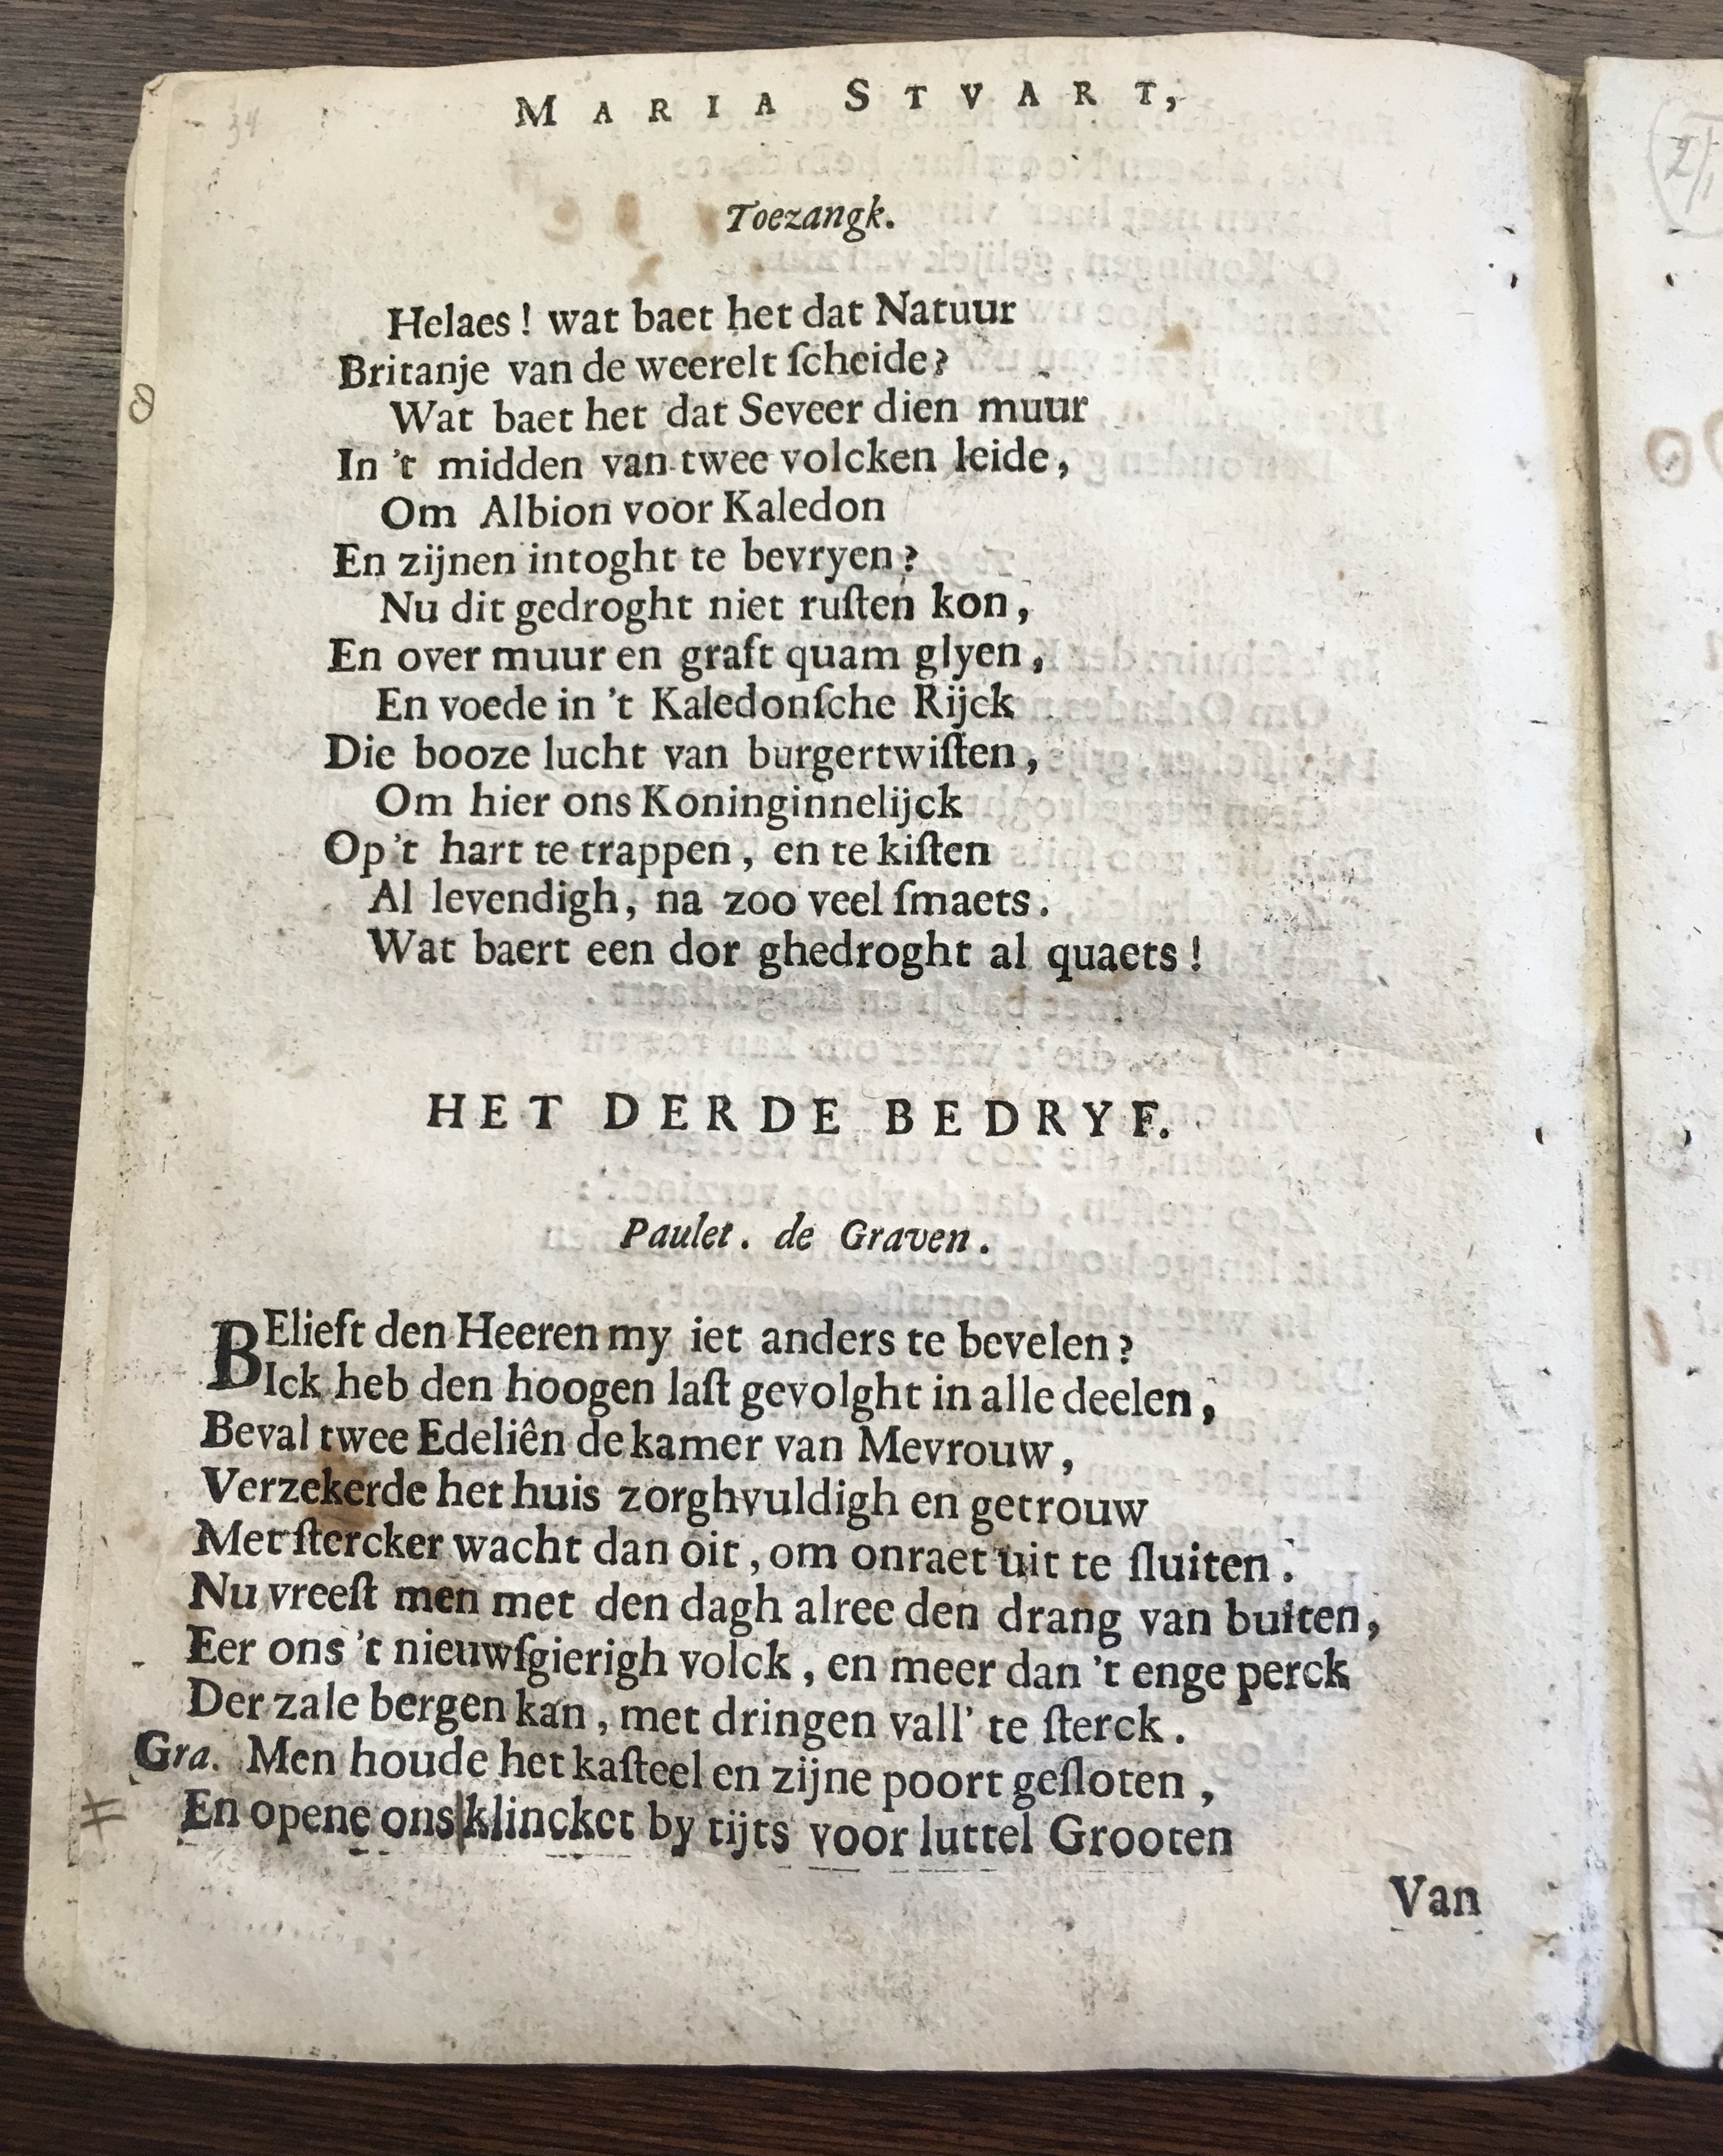 34
MARIA STVART,
Toezangk.
Helaes! wat baet het dat Natuur
Britanje van de weerelt ſcheide?
Wat baet het dat Seveer dien muur
In 't midden van twee volcken leide,
Om Albion voor Kaledon
En zijnen intoght te bevryen?
Nu dit gedroght niet ruſten kon,
En over muur en graft quam glyen,
En voede in 't Kaledonſche Rijck
Die booze lucht van burgertwiſten,
Om hier ons Koninginnelijck
Op 't hart te trappen, en te kiſten
Al levendigh, na zoo veel ſmaets.
Wat baert een dor ghedroght al quaets!
HET DERDE BEDRYF.
Paulet. de Graven.
BElieft den Heeren my iet anders te bevelen?
Ick heb den hoogen laſt gevolght in alle deelen,
Beval twee Edeliên de kamer van Mevrouw,
Verzekerde het huis zorghvuldigh en getrouw
Met ſtercker wacht dan oit, om onraet uit te ſluiten.
Nu vreeſt men met den dagh alree den drang van buiten,
Eer ons 't nieuwſgierigh volck, en meer dan 't enge perck
Der zale bergen kan, met dringen vall' te ſterck.
Gra. Men houde het kaſteel en zijne poort geſloten,
En opene ons klincket by tijts voor luttel Grooten
Van